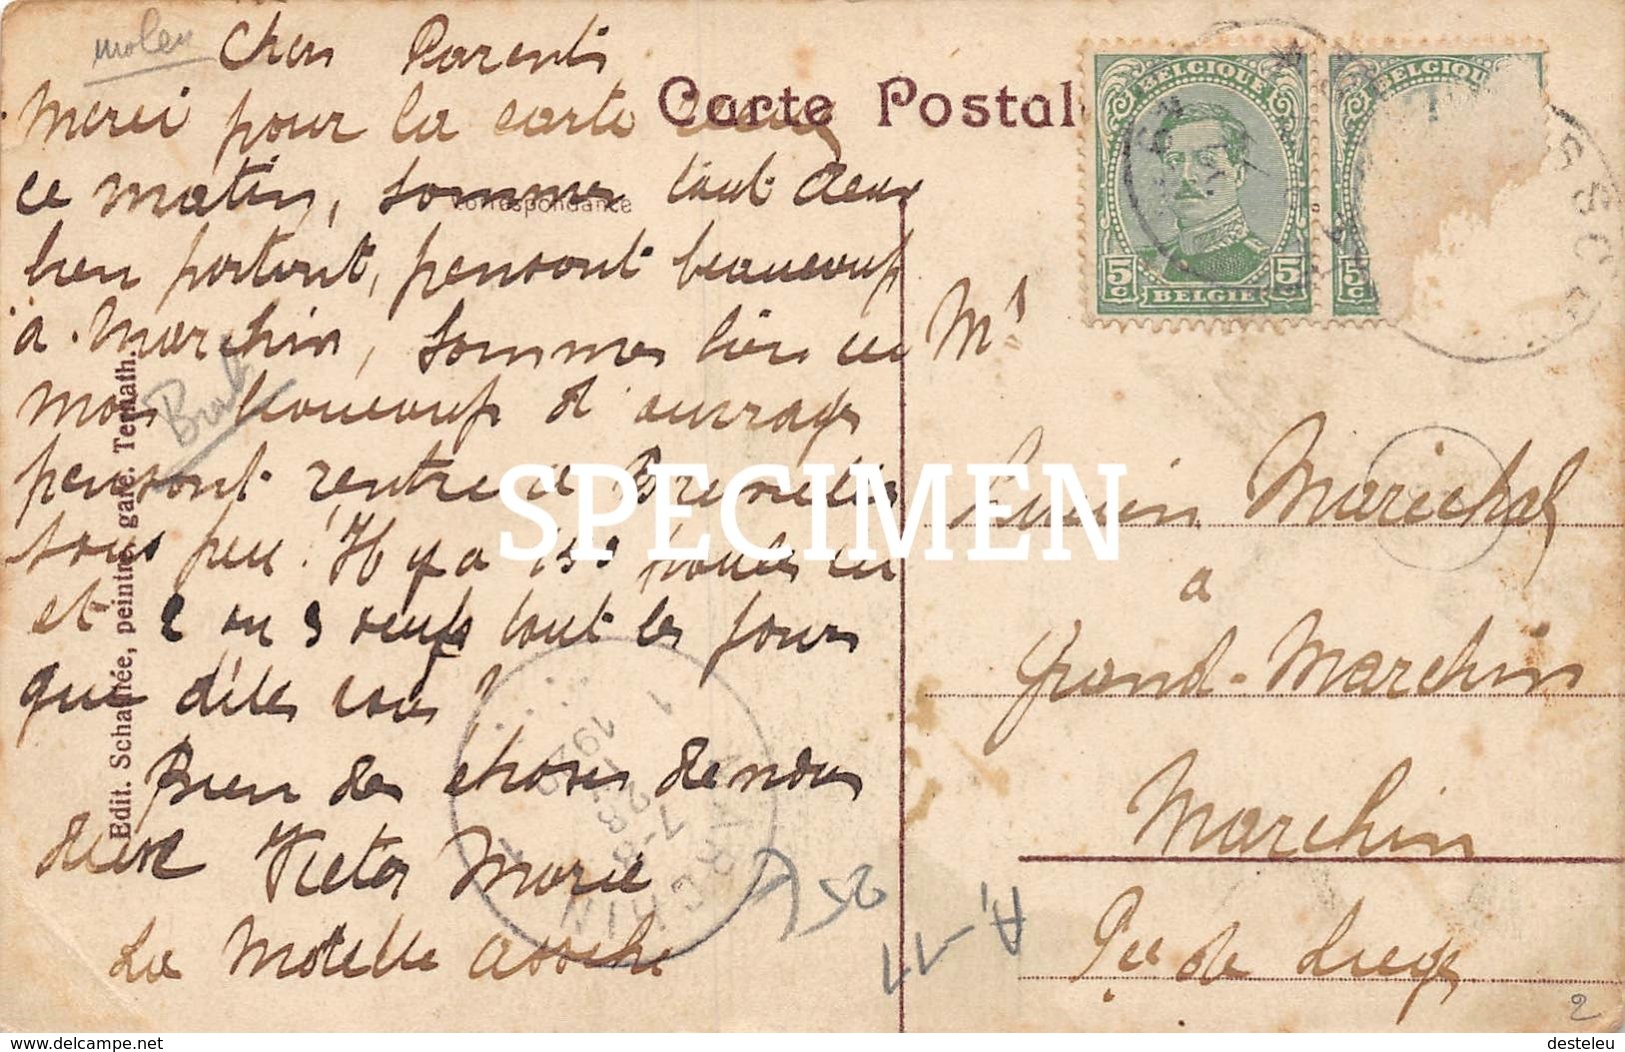 molen
Chers Parents
Merci pour la carte
ce matin, sommes tout deux
bien portant, pensont beaucoup
a Marchin, sommes bien ici
mais beaucoup d'ouvrage
pensont rentré a Bruxelles
sous peu. Il y a 150 poules ici
et 2 ou 3 oeufs tout les jours
que dites vous!
Bien des choses de nous
deux Victor Marie
La Motelle Assche
Carte Postale
Correspondance
Edit. Schaffée, peintre, gare. Ternath.
BELGIQUE
5c 5c
BELGIE
BELGIQUE
5c
Mr
Lucien Maréchal
a
Grand-Marchin
Marchin
Pce de Liege
MARCHIN
7-8
22
1920
A-11
SPECIMEN
2
delcampe.net
desteleu